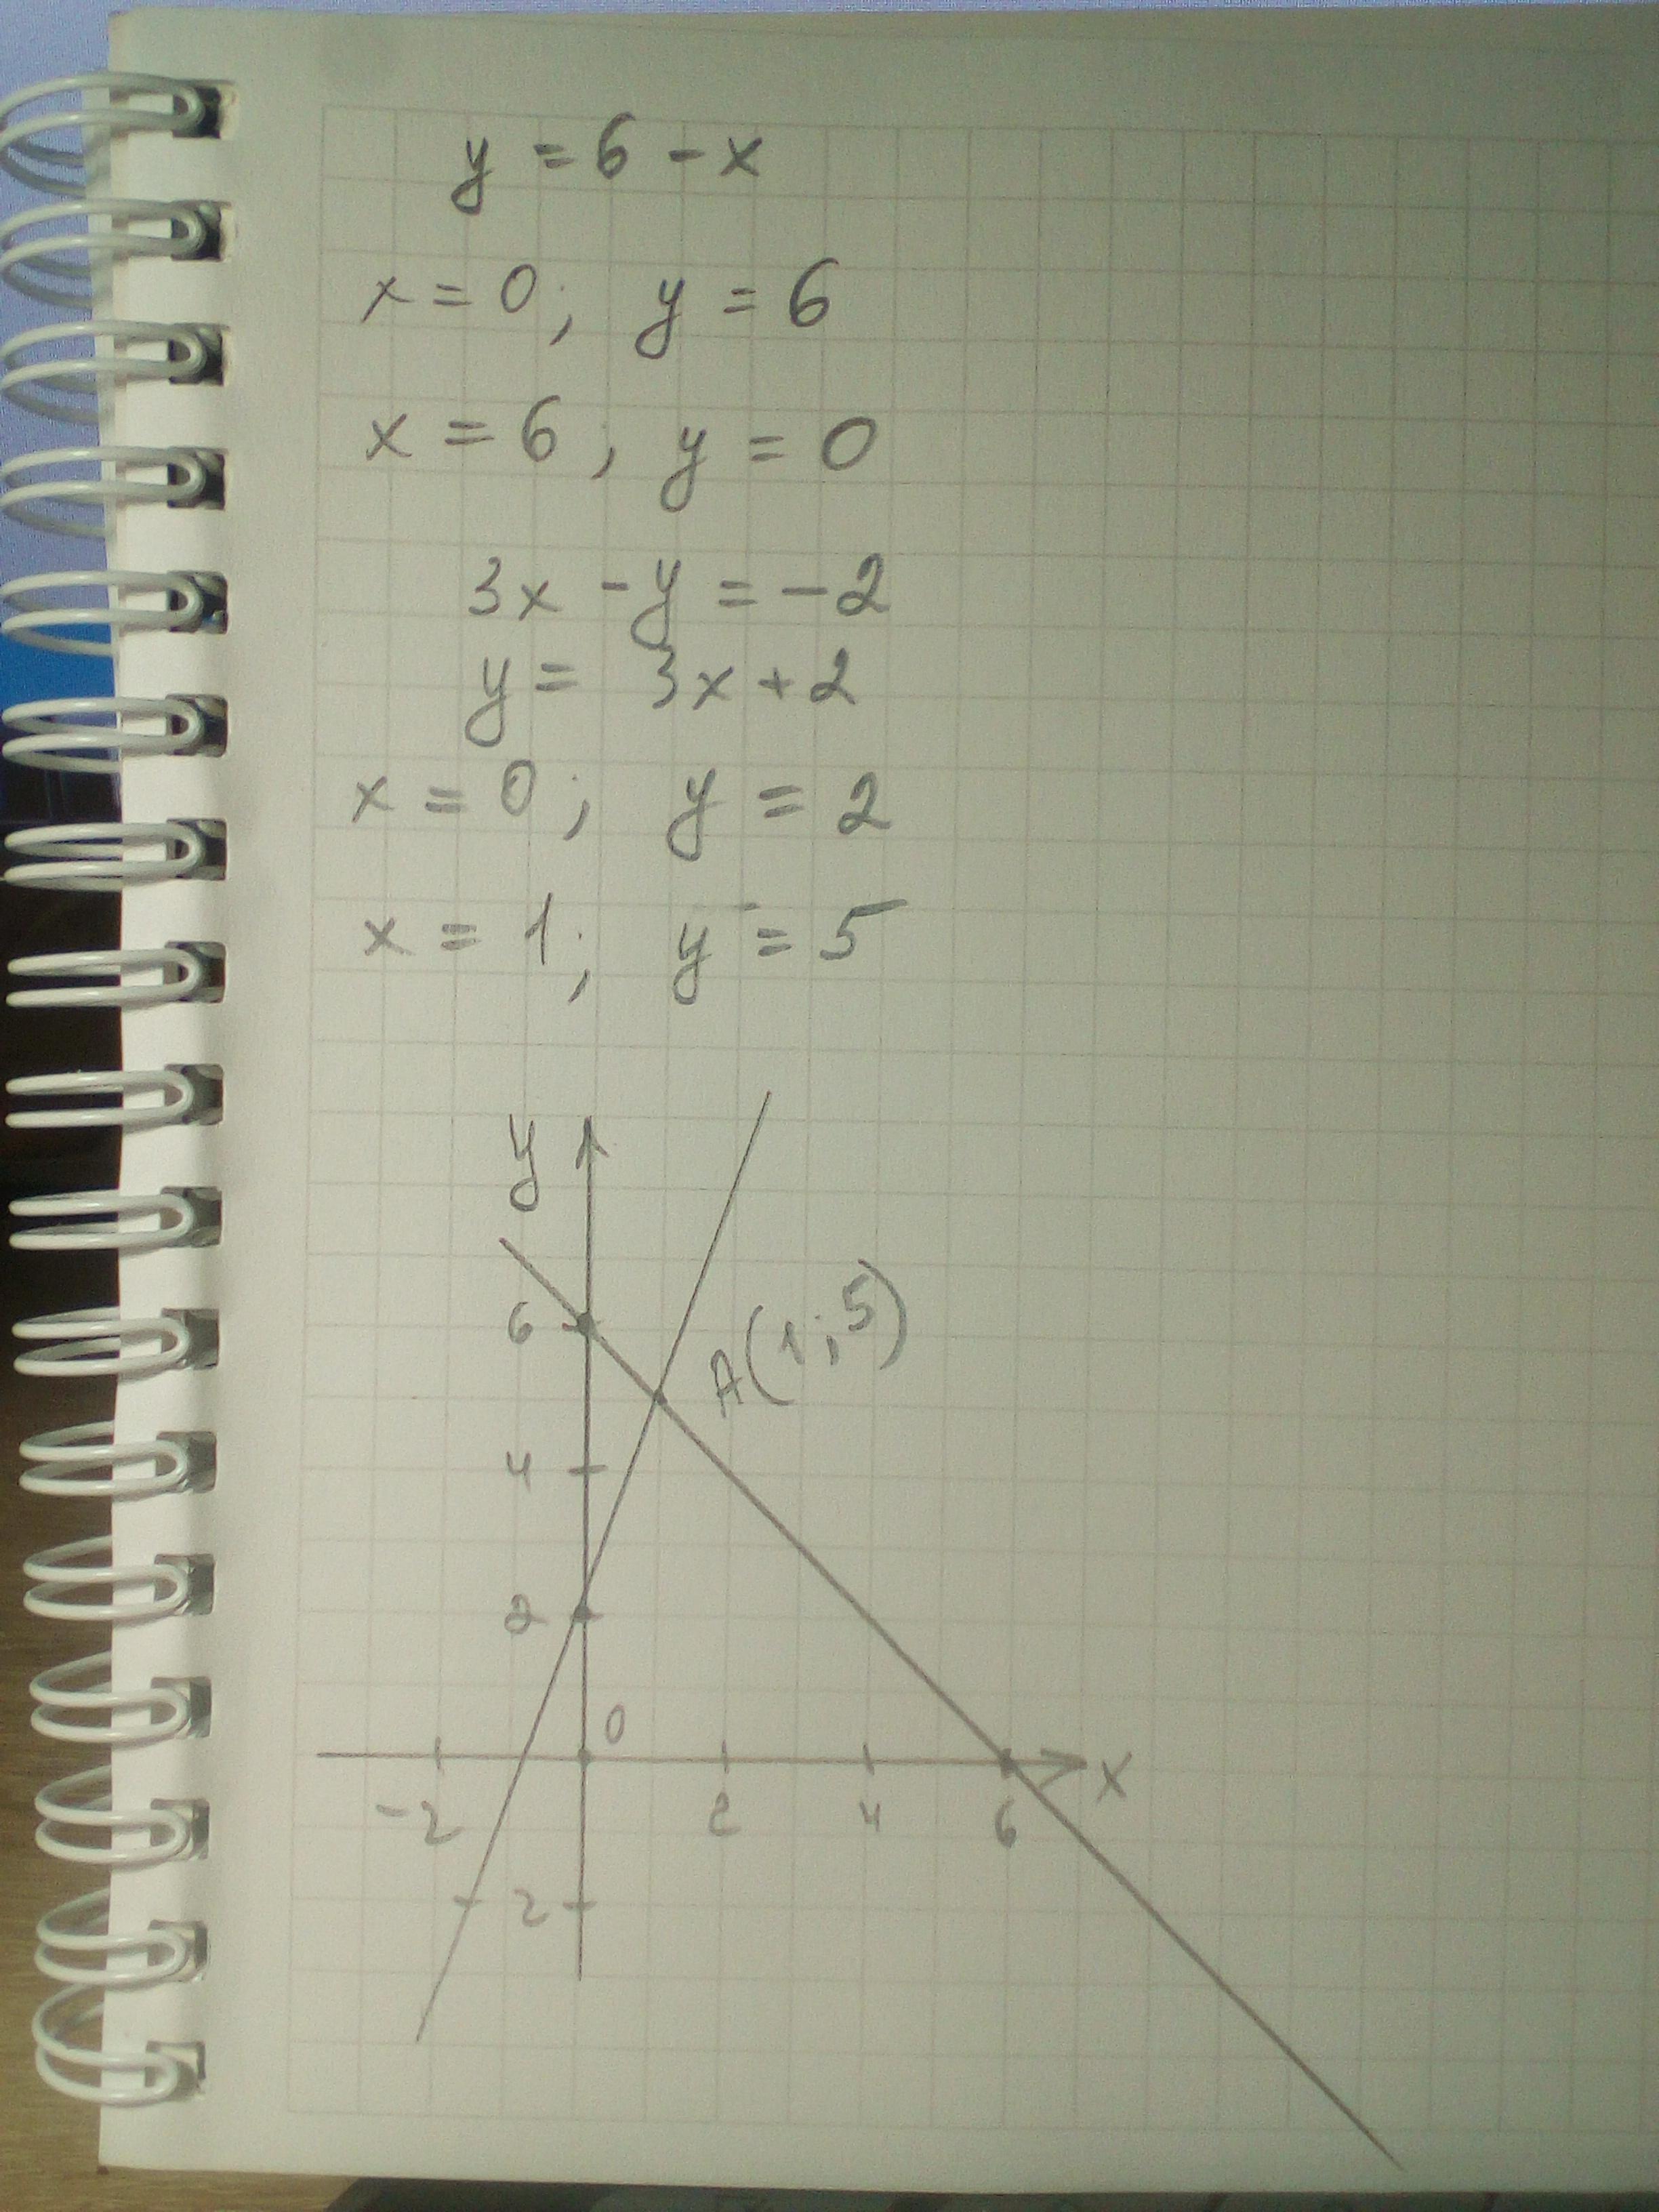 y = 6 - x
x = 0; y = 6
x = 6; y = 0
3x - y = -2
y = 3x + 2
x = 0; y = 2
x = 1; y = 5
y
6
A(1; 5)
4
2
0
x
-2 2 4 6
-2